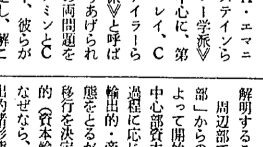 解明する
周辺部
部」からの
よって開始
中心部資本
過程に応じ
輸出的・帝
態をとるが
移行を決定
的（資本輸
なぜなら、
・エマニ
テインら
ー学派》
心に、第
レイ、C
イラーら
》と呼ば
あげられ
両問題を
ミンとC
、彼らが